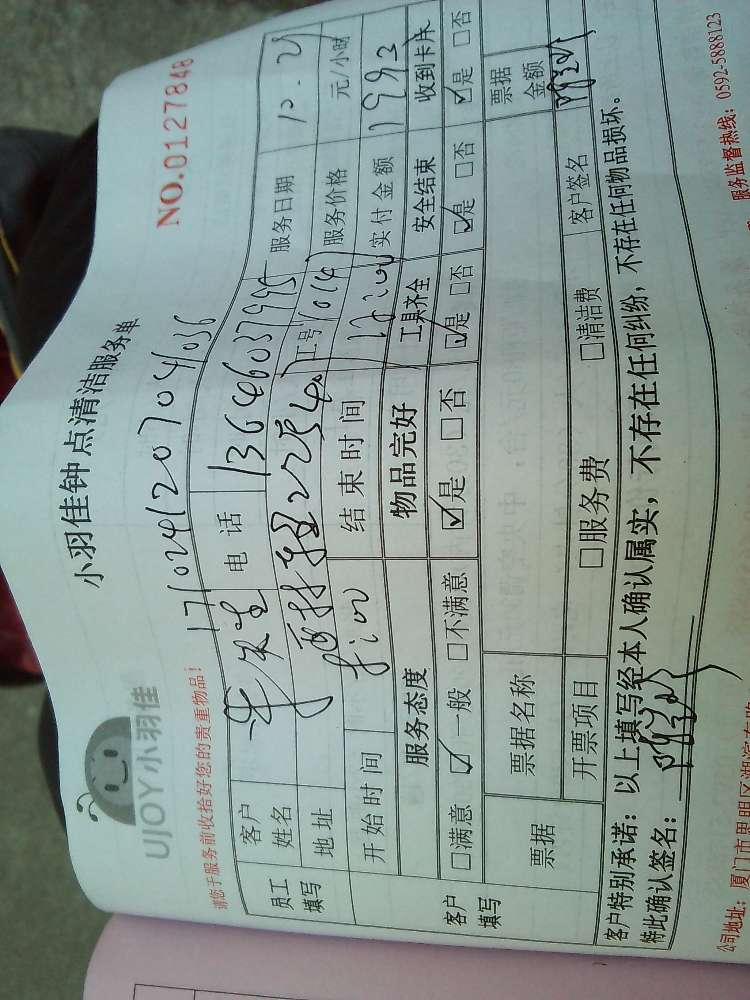 小羽佳钟点清洁服务单
UJOY小羽佳
NO.0127848
171024120704036
请您于服务前收拾好您的贵重物品！
员工填写
客户姓名
电话 13646037995
服务日期 10.29
地址
工号
服务价格 元/小时
开始时间 8:00
结束时间 12:00
实付金额
客户填写
服务态度 物品完好 工具齐全 安全结束 收到卡片
□满意 ☑一般 □不满意 ☑是 □否 ☑是 □否 ☑是 □否 ☑是 □否
票据
票据名称
票据金额
开票项目 □服务费 □清洁费 客户签名
客户特别承诺：以上填写经本人确认属实，不存在任何纠纷，不存在任何物品损坏。
特此确认签名：
公司地址：厦门市思明区湖滨东路
服务监督热线：0592-5888123